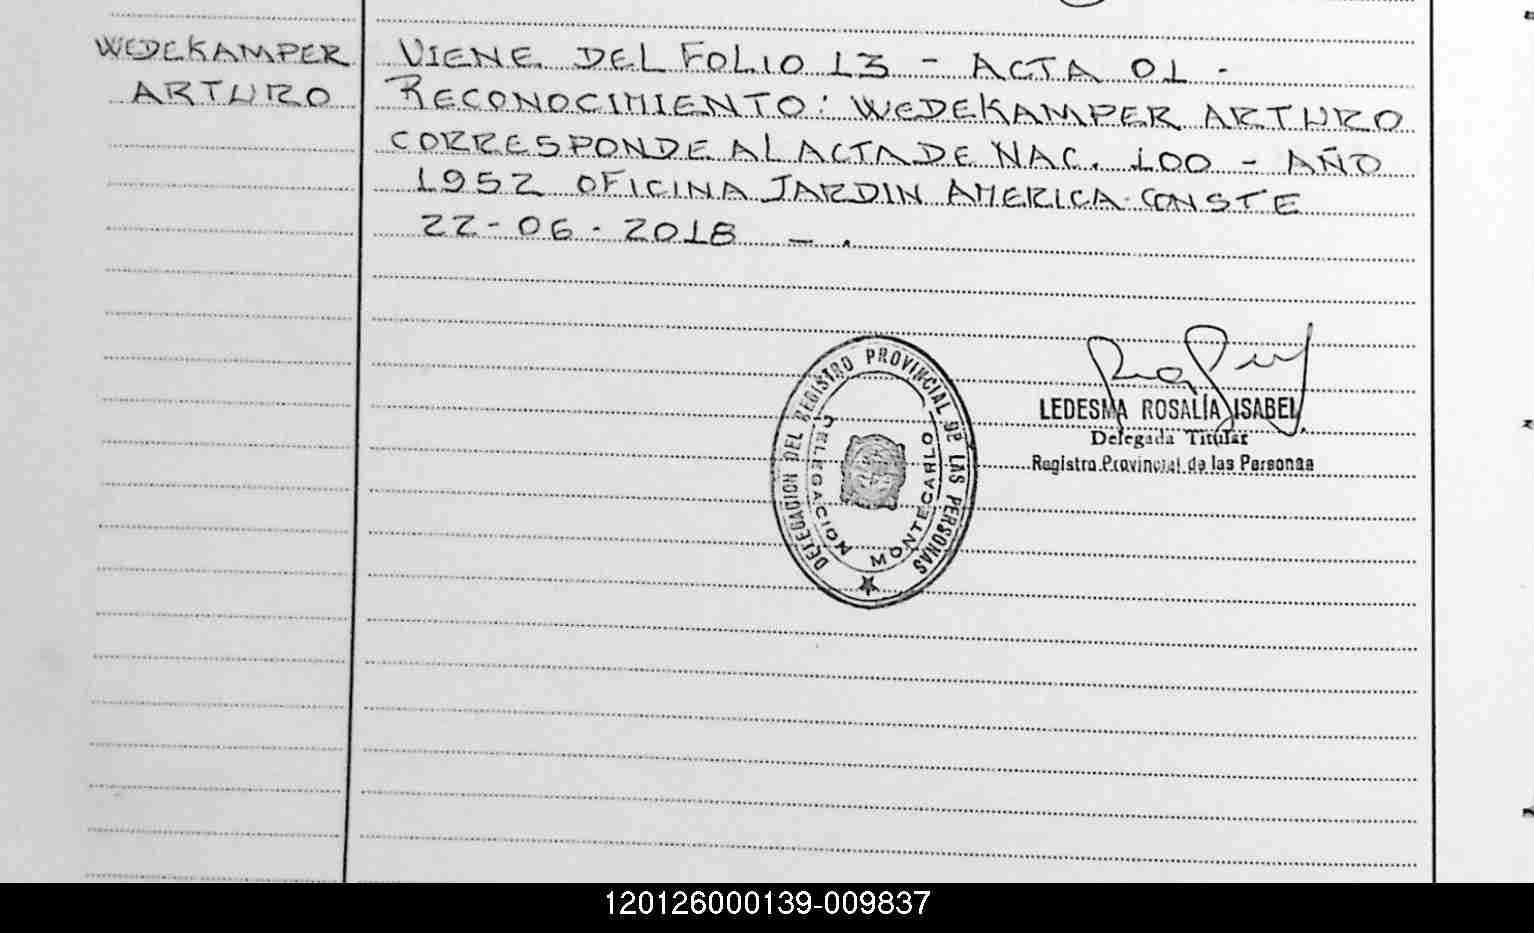 WEDEKAMPER
ARTURO
VIENE DEL FOLIO 13 - ACTA 01 -
RECONOCIMIENTO: WEDEKAMPER ARTURO
CORRESPONDE AL ACTA DE NAC. 100 - AÑO
1952 OFICINA JARDIN AMERICA. CONSTE
22-06-2018 - .
DELEGACION DEL REGISTRO PROVINCIAL DE LAS PERSONAS
DELEGACION MONTECARLO
LEDESMA ROSALÍA ISABEL
Delegada Titular
Registro Provincial de las Personas
120126000139-009837